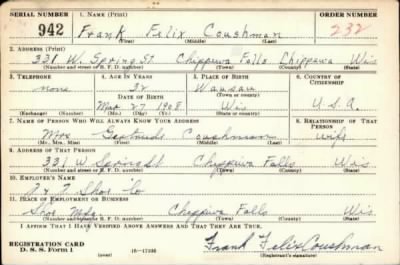 SERIAL NUMBER 1. NAME (Print) ORDER NUMBER
942 Frank Felix Coushman 232
(First) (Middle) (Last)
2. ADDRESS (Print)
331 W. Spring St. Chippewa Falls Chippewa Wis
(Number and street or R. F. D. number) (Town) (County) (State)
3. TELEPHONE 4. AGE IN YEARS 5. PLACE OF BIRTH 6. COUNTRY OF CITIZENSHIP
none 32 Wausau
DATE OF BIRTH (Town or county)
Mar 27 1908 Wis U.S.A.
(Exchange) (Number) (Mo.) (Day) (Yr.) (State or country)
7. NAME OF PERSON WHO WILL ALWAYS KNOW YOUR ADDRESS 8. RELATIONSHIP OF THAT PERSON
Mrs Gertrude Coushman wife
(Mr., Mrs., Miss) (First) (Middle) (Last)
9. ADDRESS OF THAT PERSON
331 W Spring St Chippewa Falls Wis
(Number and street or R. F. D. number) (Town) (County) (State)
10. EMPLOYER'S NAME
Shoe Co
11. PLACE OF EMPLOYMENT OR BUSINESS
Shoe Mfg. Chippewa Falls Wis.
(Number and street or R. F. D. number) (Town) (County) (State)
I AFFIRM THAT I HAVE VERIFIED ABOVE ANSWERS AND THAT THEY ARE TRUE.
REGISTRATION CARD
D. S. S. Form 1 (over) 16-17105 Frank Felix Coushman
(Registrant's signature)